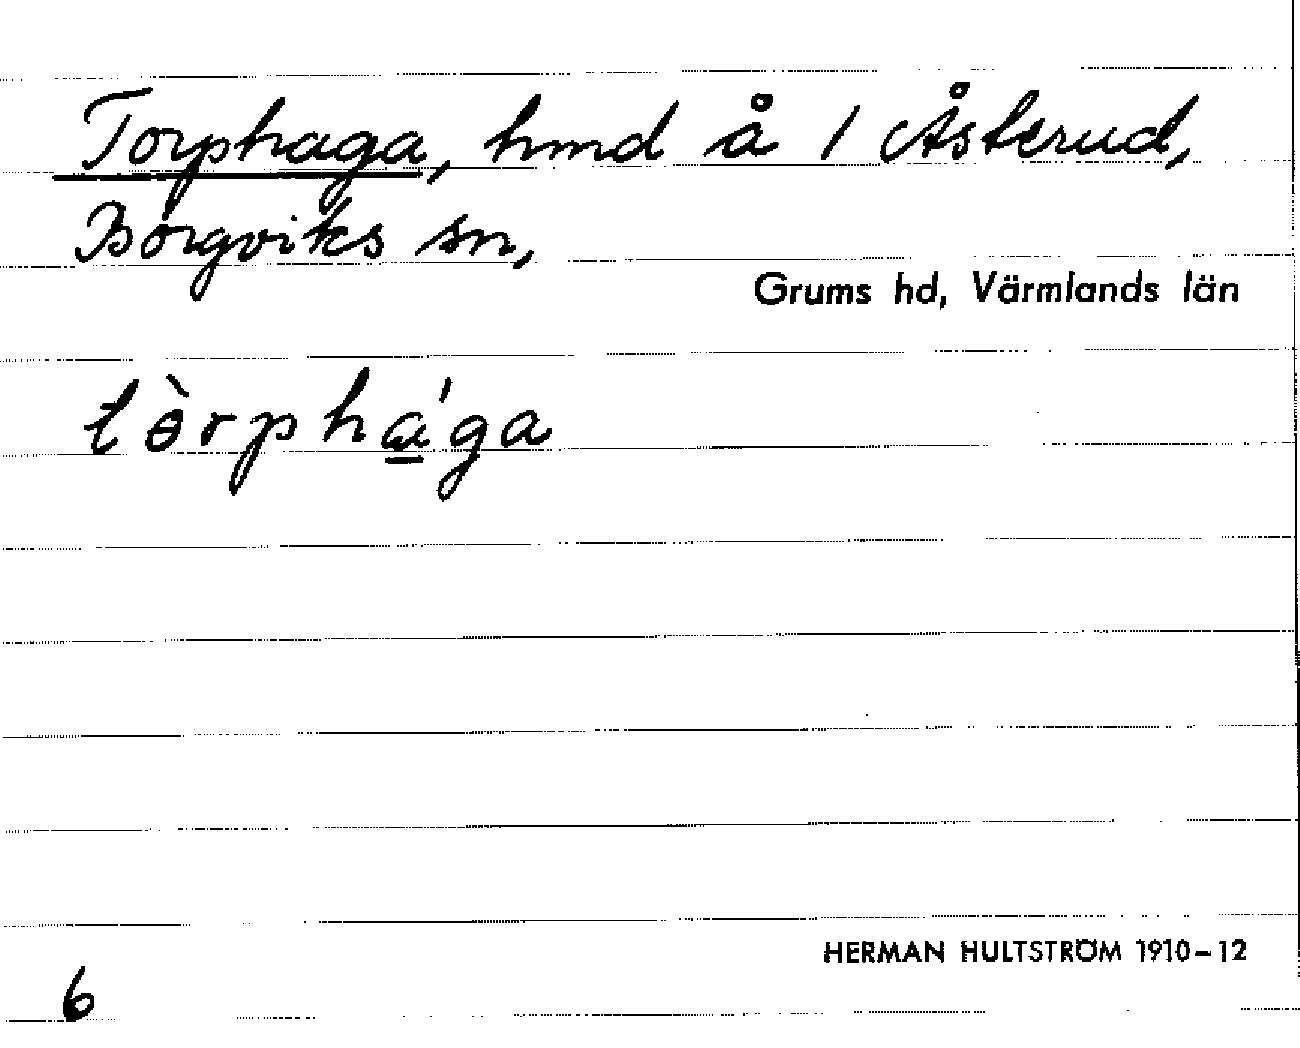 Torphaga, hmd å 1 Åsterud,
Borgviks sn,
Grums hd, Värmlands län
tɵ̀rpha̱'ga
HERMAN HULTSTRÖM 1910–12
6